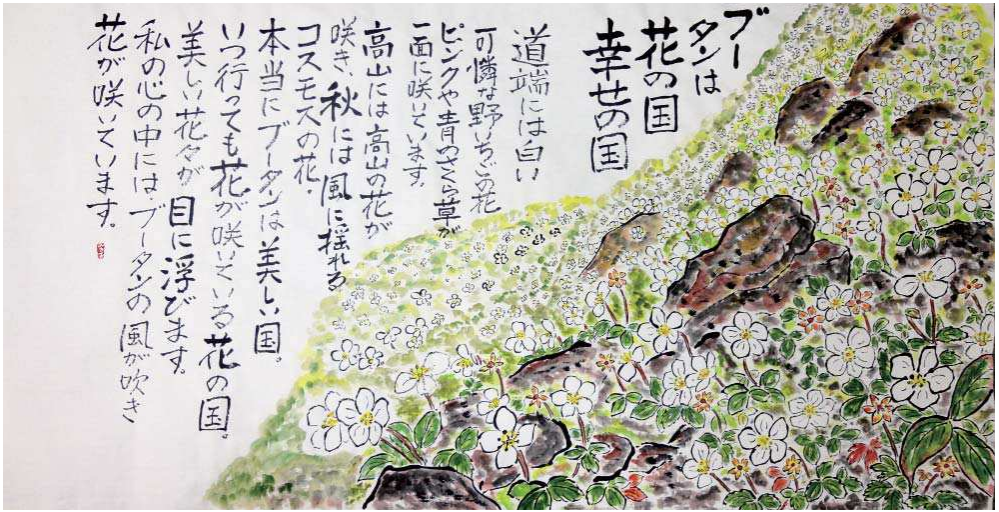 ブー
タンは
花の国
幸せの国
道端には白い
可憐な野いちごの花
ピンクや青のさくら草が
一面に咲いています。
高山には高山の花が
咲き、秋には風に揺れる
コスモスの花。
本当にブータンは美しい国。
いつ行っても花が咲いている花の国。
美しい花々が目に浮びます。
私の心の中には、ブータンの風が吹き
花が咲いています。